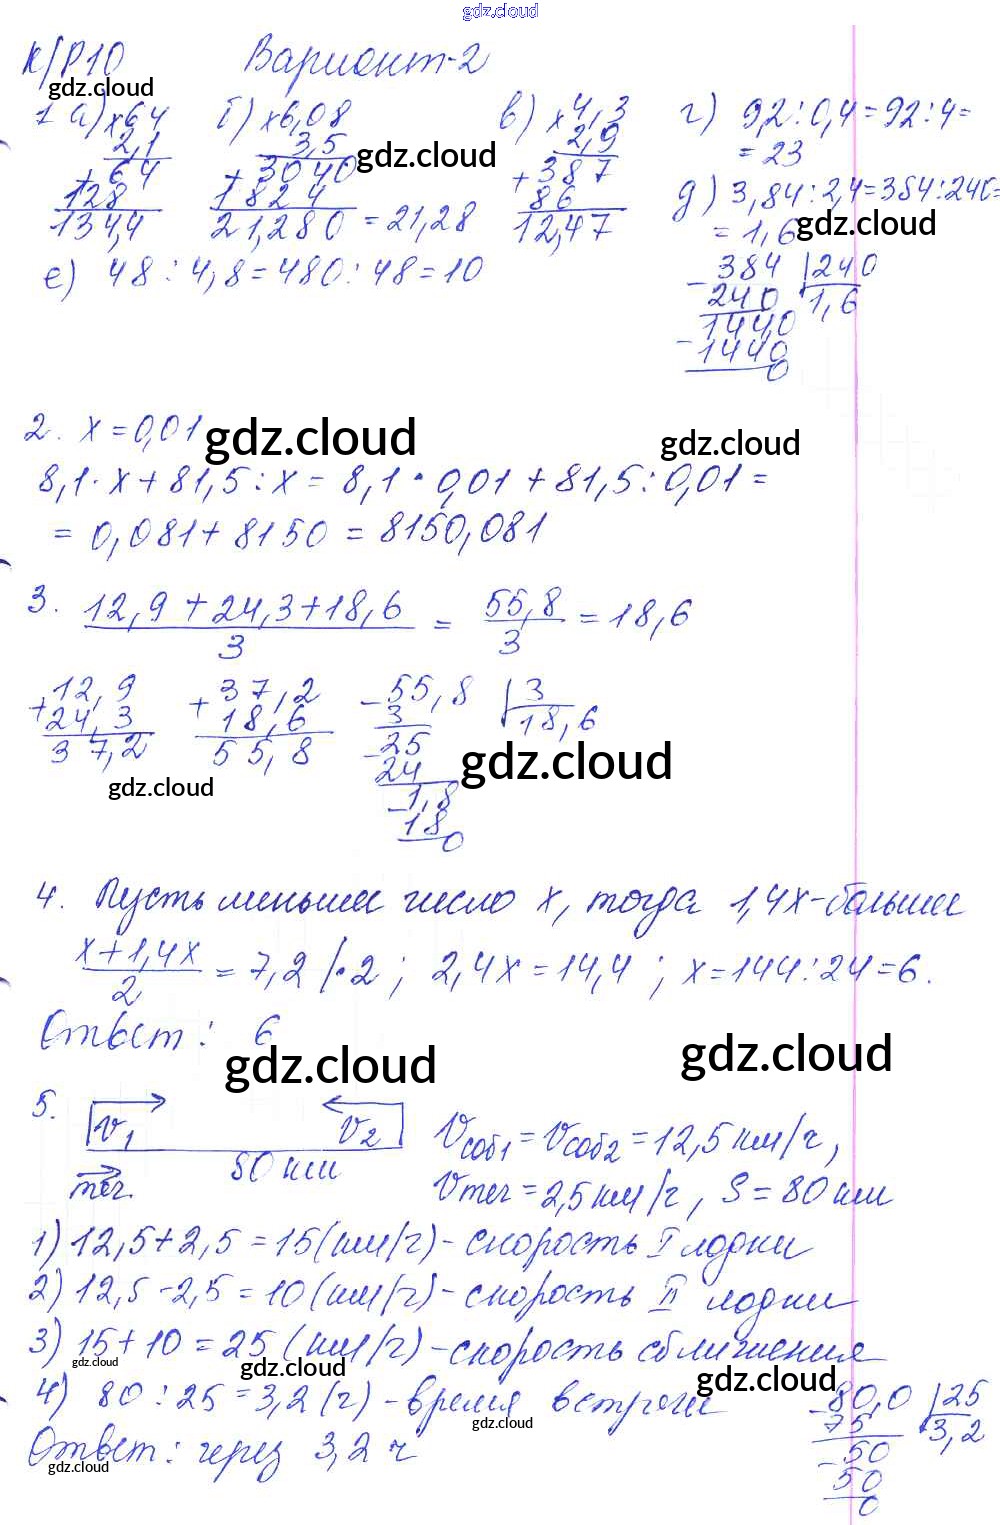 gdz.cloud
К/Р10 Вариант-2
gdz.cloud
1 а) ×64
2,1
+64
128
134,4
б) ×6,08
3,5
+3040
1824
21,280 = 21,28
gdz.cloud
в) ×4,3
2,9
+387
86
12,47
г) 9,2 : 0,4 = 92 : 4 =
= 23
д) 3,84 : 2,4 = 384 : 240 =
= 1,6
gdz.cloud
-384 | 240
240 1,6
1440
-1440
0
е) 48 : 4,8 = 480 : 48 = 10
2. x = 0,01
gdz.cloud gdz.cloud
8,1 · x + 81,5 : x = 8,1 · 0,01 + 81,5 : 0,01 =
= 0,081 + 8150 = 8150,081
3. 12,9 + 24,3 + 18,6 / 3 = 55,8 / 3 = 18,6
+12,9
24,3
37,2
+37,2
18,6
55,8
-55,8 | 3
3 18,6
-25
24
-1,8
18
0
gdz.cloud
gdz.cloud
4. Пусть меньшее число x, тогда 1,4x - большее
x + 1,4x / 2 = 7,2 | · 2 ; 2,4x = 14,4 ; x = 144 : 24 = 6.
Ответ : 6
gdz.cloud gdz.cloud
5. V1 V2
80 км
теч.
Vсоб1 = Vсоб2 = 12,5 км/ч,
Vтеч = 2,5 км/ч, S = 80 км
1) 12,5 + 2,5 = 15 (км/ч) - скорость I лодки
2) 12,5 - 2,5 = 10 (км/ч) - скорость II лодки
3) 15 + 10 = 25 (км/ч) - скорость сближения
gdz.cloud gdz.cloud gdz.cloud
4) 80 : 25 = 3,2 (ч) - время встречи
gdz.cloud
Ответ : через 3,2 ч
gdz.cloud
-80,0 | 25
75 3,2
-50
50
0